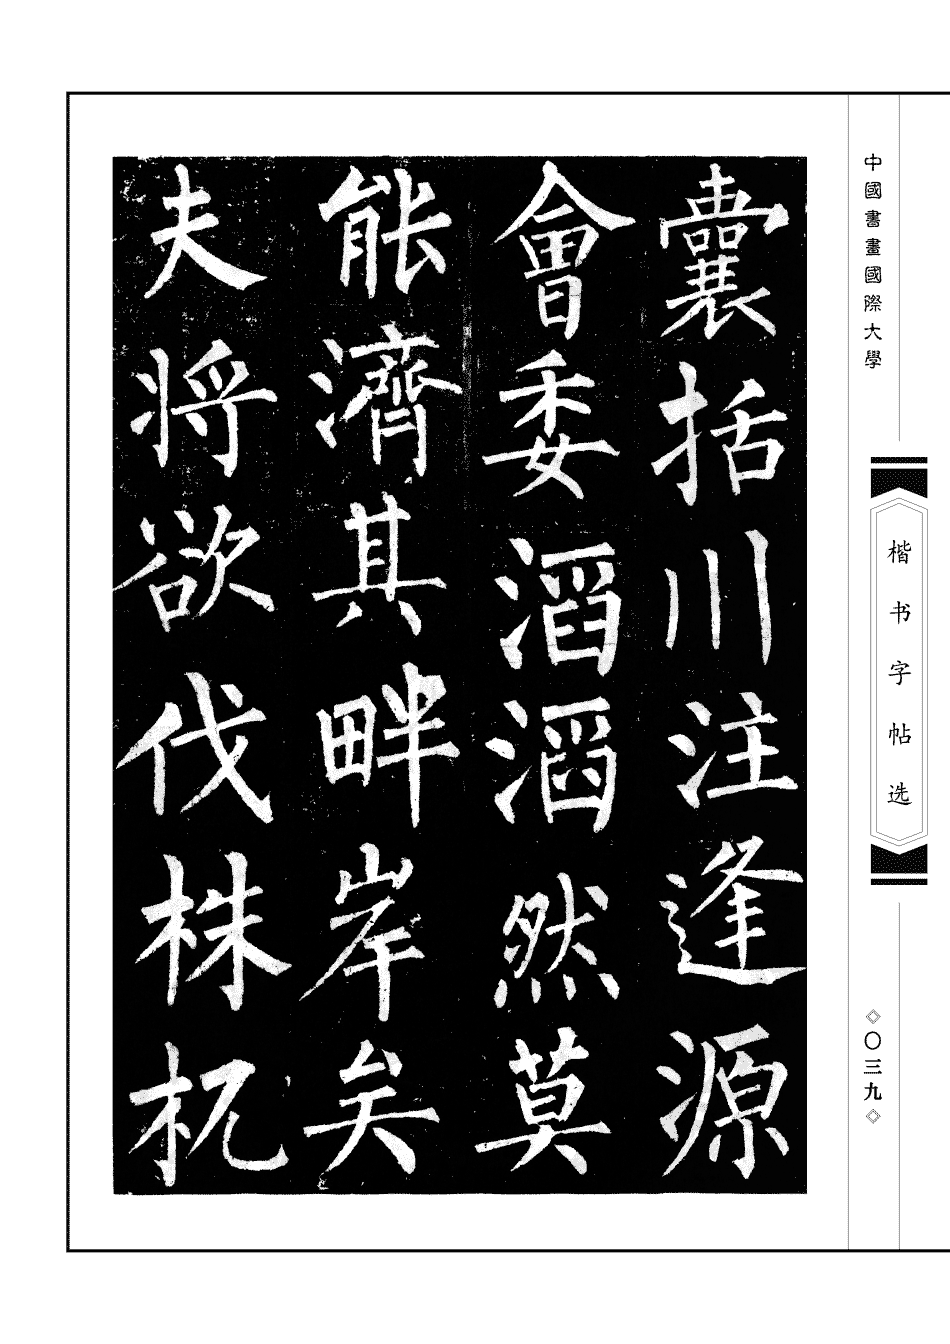 囊括川注逢源
會委滔滔然莫
能濟其畔岸矣
夫將欲伐株杌
中國書畫國際大學
楷书字帖选
〇三九